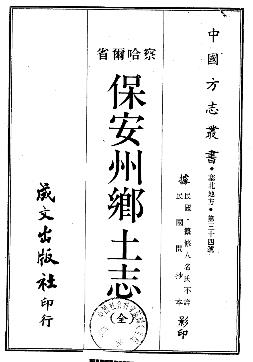 中國方志叢書・塞北地方・第三十四號
據民國・纂修人名氏不詳
民國間抄本
影印
察哈爾省
保安州鄉土志
(全)
成文出版社印行